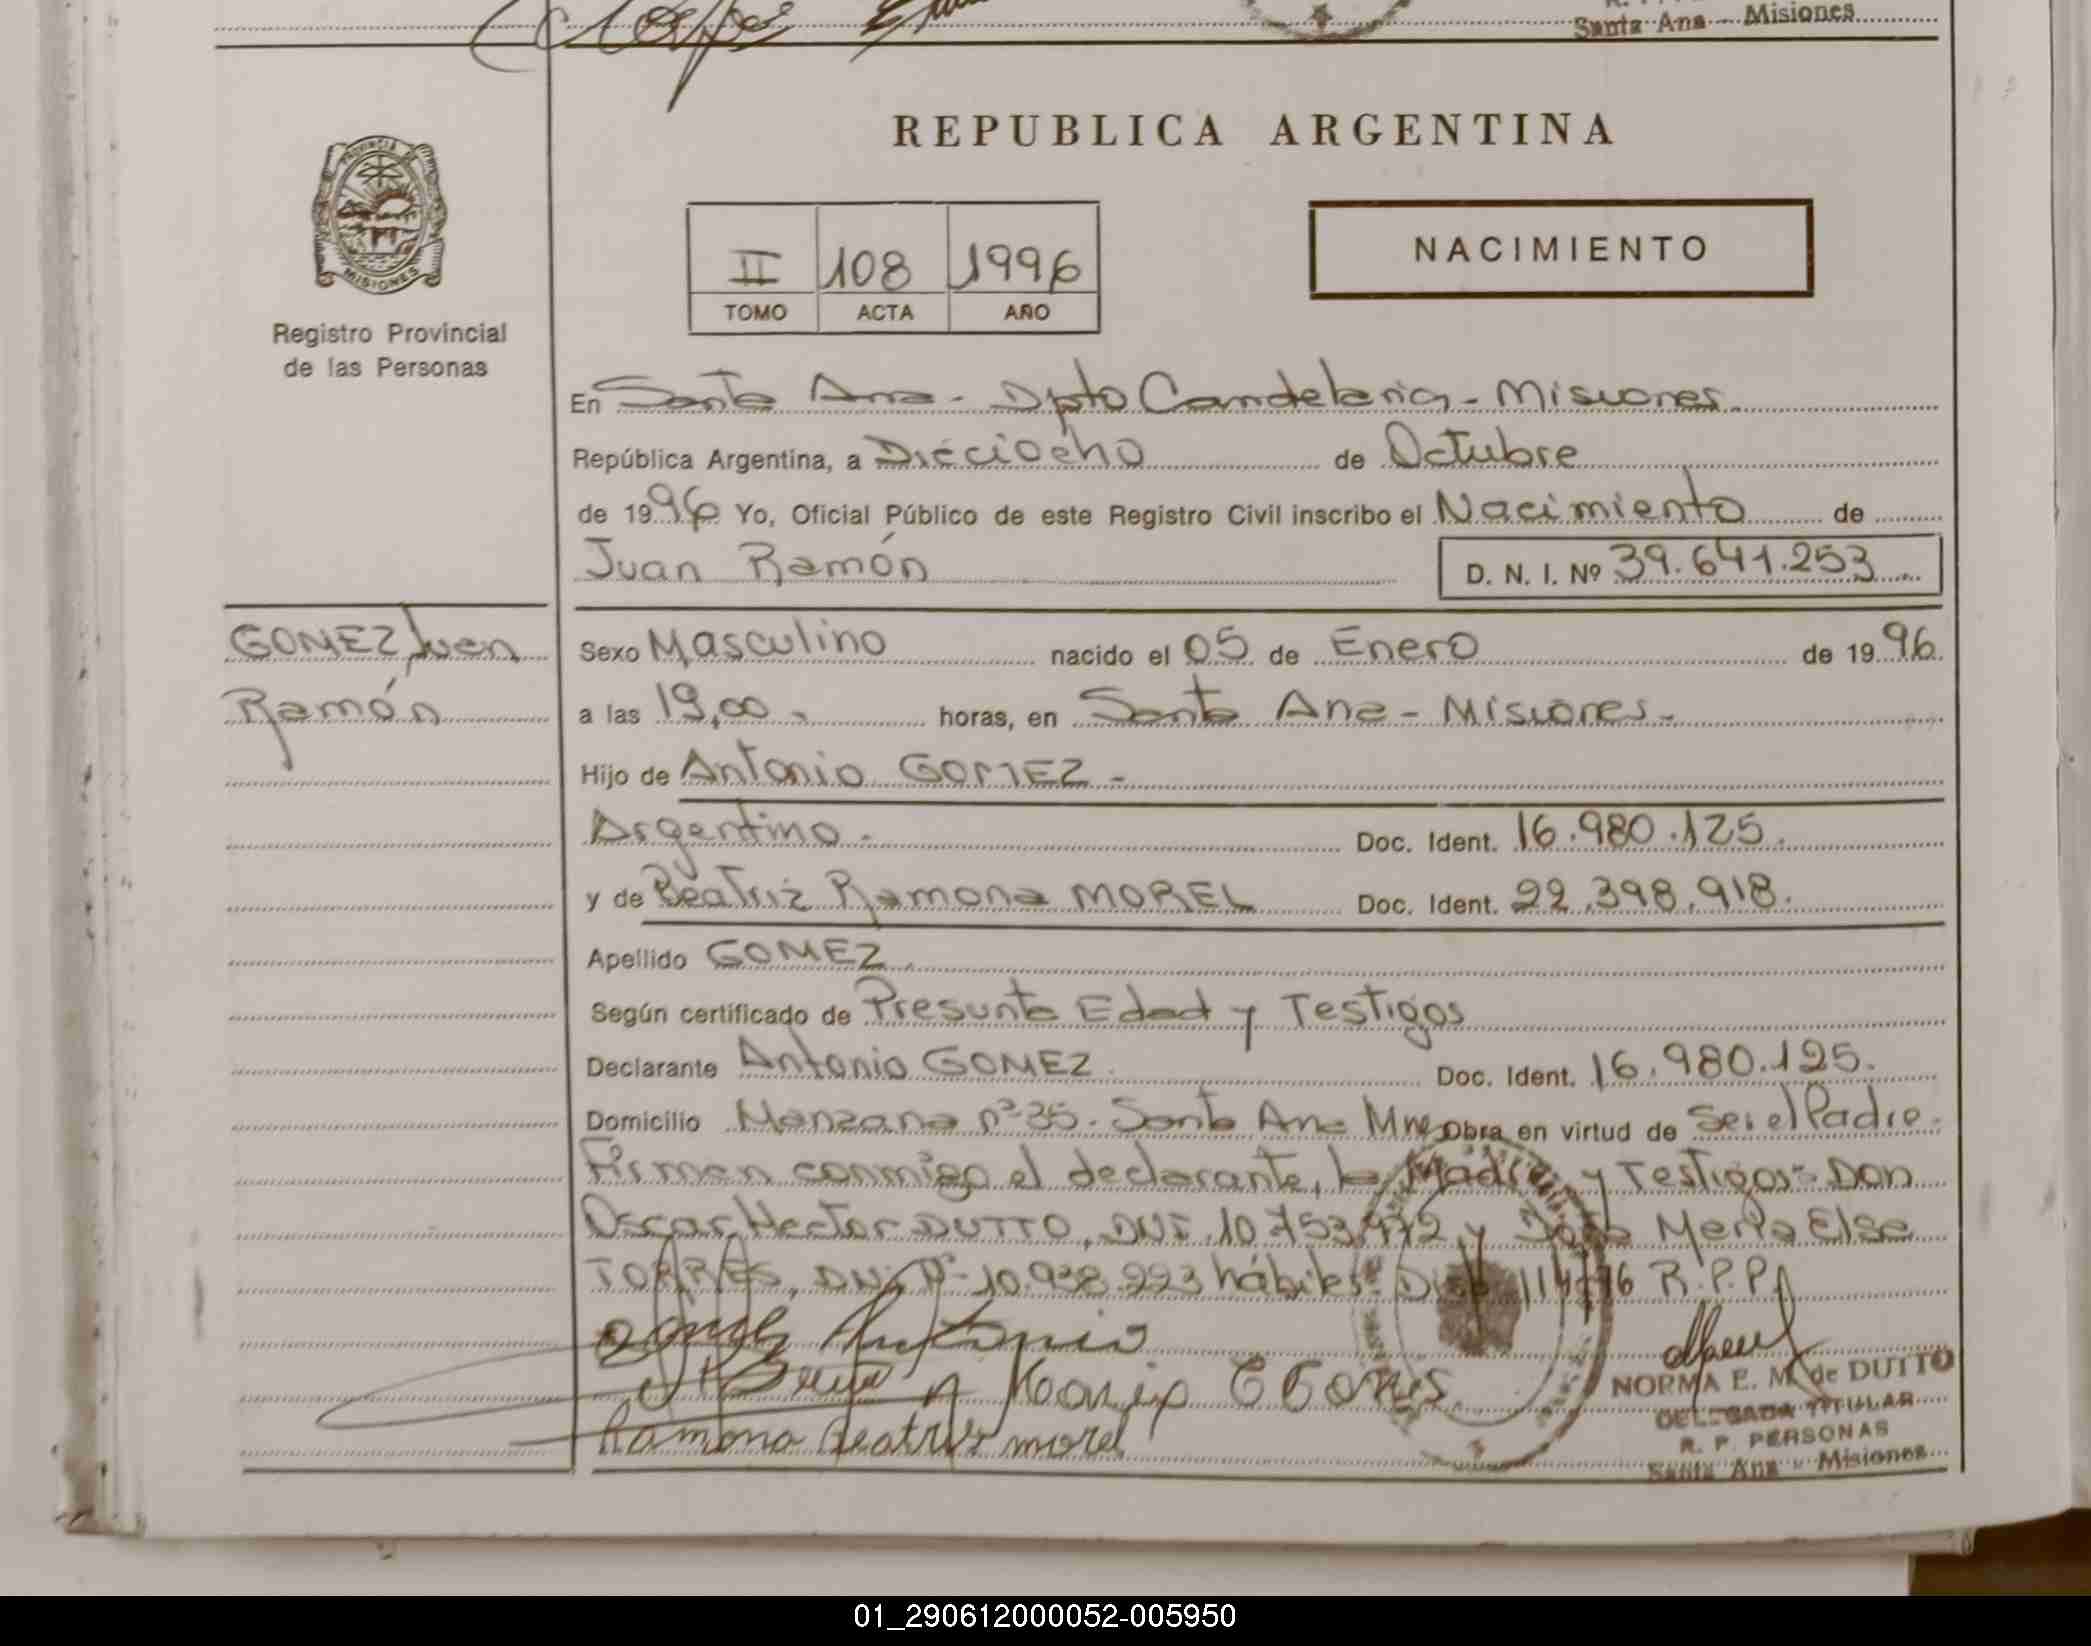 Santa Ana - Misiones
REPUBLICA ARGENTINA
PROVINCIA DE
MISIONES
Registro Provincial
de las Personas
II 108 1996
TOMO ACTA AÑO
NACIMIENTO
En Santa Ana - Dpto Candelaria - Misiones.
República Argentina, a Dieciocho de Octubre
de 1996 Yo, Oficial Público de este Registro Civil inscribo el Nacimiento de
Juan Ramón D. N. I. Nº 39.641.253
GOMEZ, Juan
Ramón
Sexo Masculino nacido el 05 de Enero de 1996.
a las 19,00 . horas, en Santa Ana - Misiones.
Hijo de Antonio GOMEZ -
Argentino. Doc. Ident. 16.980.125.
y de Beatriz Ramona MOREL Doc. Ident. 22.398.918.
Apellido GOMEZ.
Según certificado de Presunta Edad y Testigos
Declarante Antonio GOMEZ. Doc. Ident. 16.980.125.
Domicilio Manzana nº 35. Santa Ana Mnes Obra en virtud de Ser el Padre.
Firman conmigo el declarante, la Madre y Testigos: Don
Oscar Hector DUTTO, DNI. 10.753.472 y Doña Marta Elsa
TORRES, DNI Nº 10.938.223 hábiles. 114/96 R.P.P.
Gomez Antonio
Ramona Beatriz morel
NORMA E. M. de DUTTO
DELEGADA TITULAR
R. P. PERSONAS
Santa Ana - Misiones
01_290612000052-005950